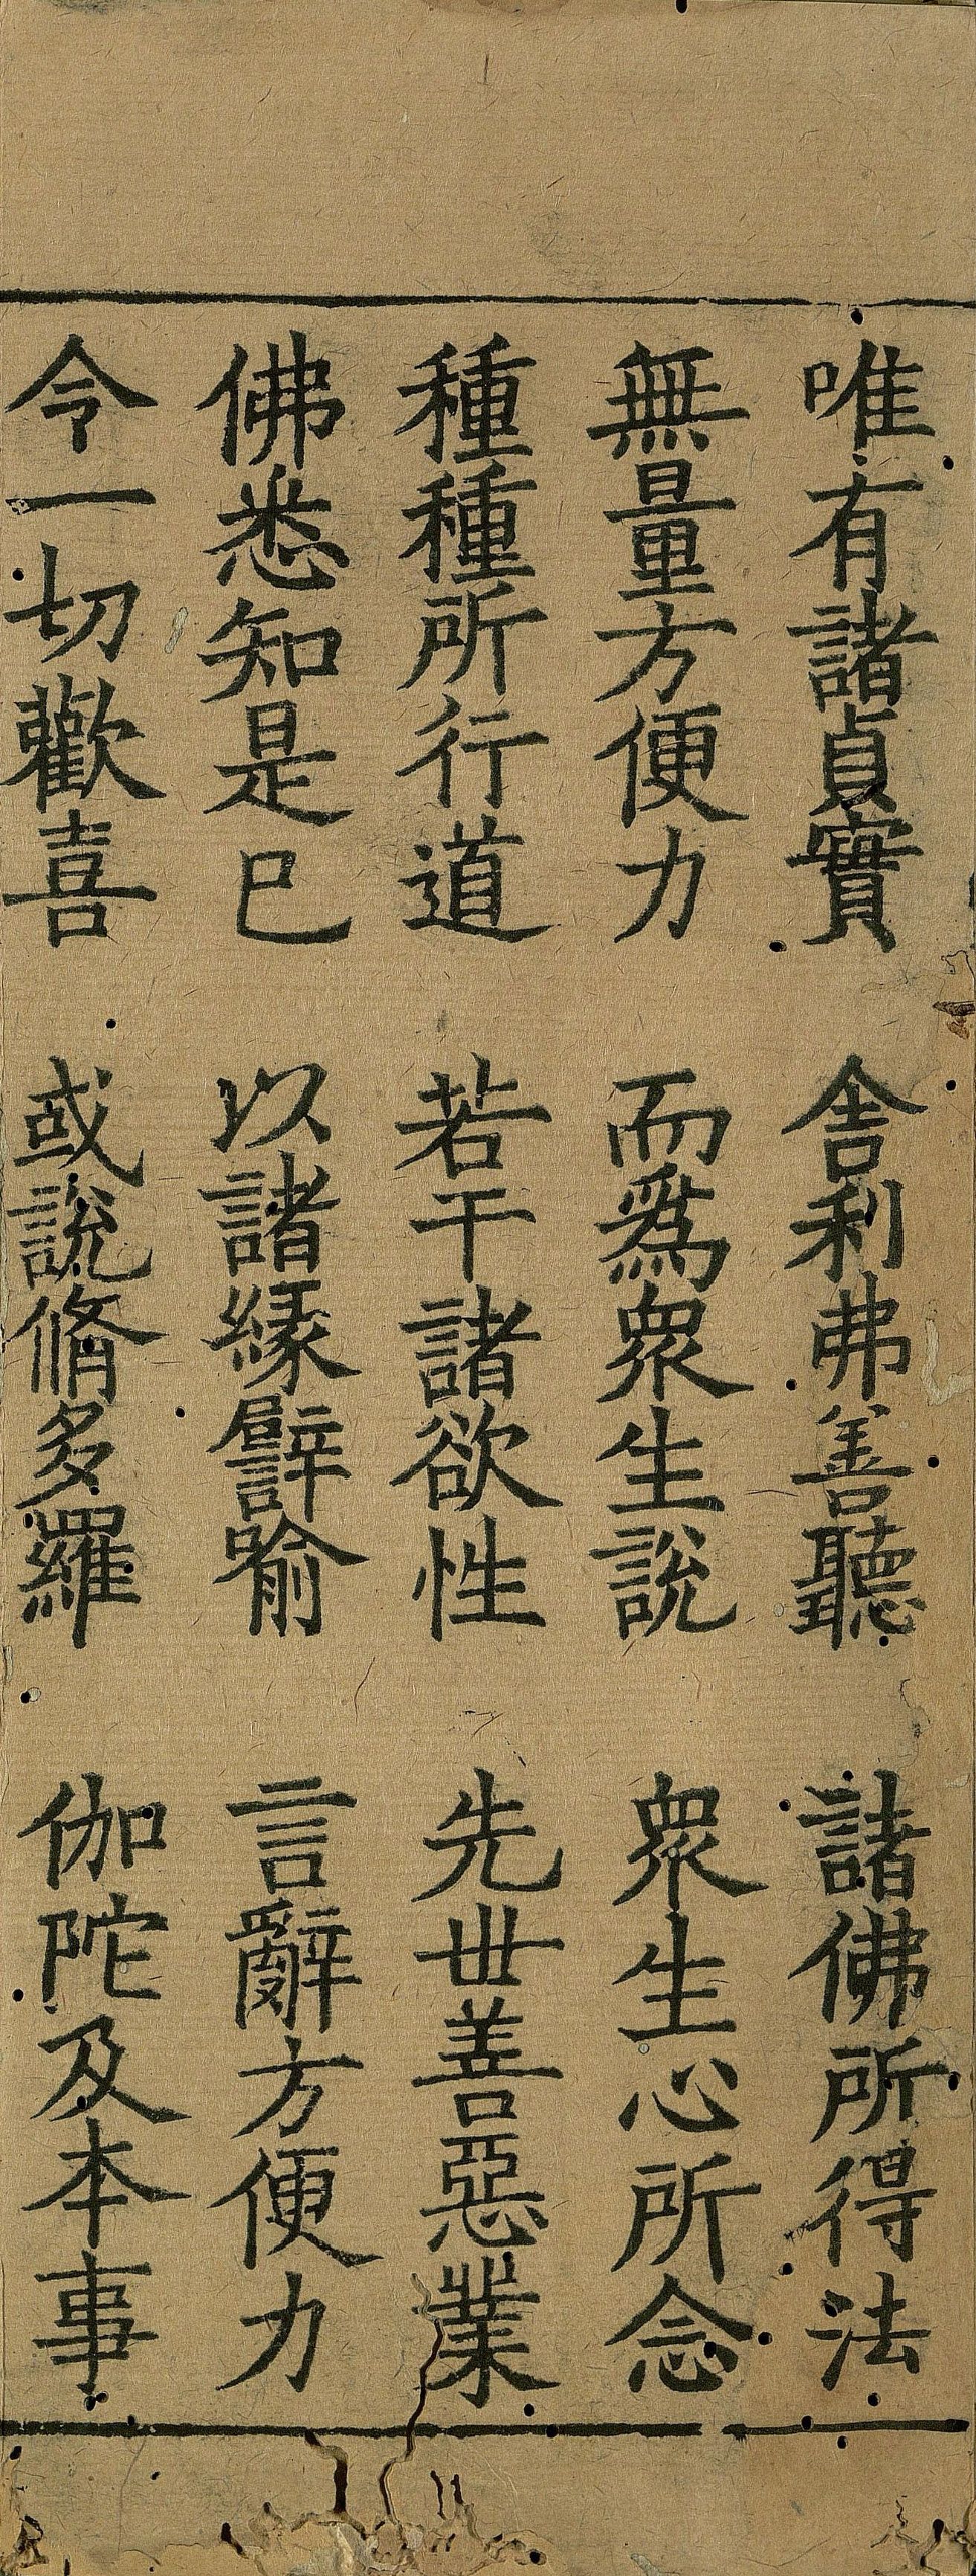 唯有諸貞實　舍利弗善聽　諸佛所得法
無量方便力　而爲衆生說　衆生心所念
種種所行道　若干諸欲性　先世善惡業
佛悉知是已　以諸緣譬喻　言辭方便力
令一切歡喜　或說脩多羅　伽陀及本事